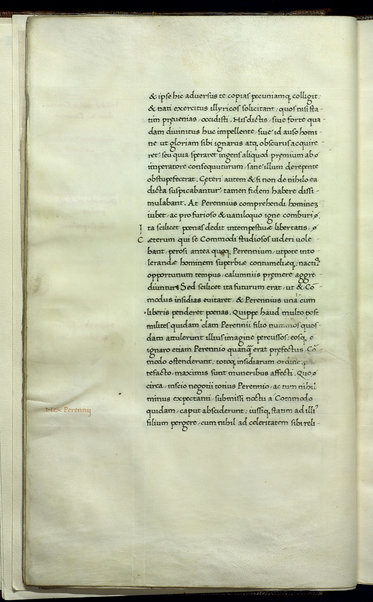 & ipse hic adversus te copias pecuniamq, colligit
& nati exercitus illyricos solicitant. quos nisi sta
tim prevenias, occidisti. His dictis, sive forte qua
dam divinitus huc impellente, sive id auso homi
ne, ut gloriam sibi ignarus atq, obscurus acquire
ret, seu quia speraret ingens aliquod premium ab
imperatore consequuturum, sane illum derepente
obstupefecerat. Ceteri autem & si non de nihilo ea
dicta suspicabantur, tamen fidem habere dissi
mulabant. At Perennius comprehendi hominez
iubet, ac pro furioso & vaniloquo igne comburi.
ita scilicet poenas dedit intempestivę libertatis.
Ceterum qui se Commodi studiosos videri vole
bant, perosi antea quoq, Perennium, utpote into
lerandę hominem superbię contumelięq, nacti
opportunum tempus, calumniis premere aggre
diuntur. Sed scilicet ita futurum erat, ut & Com
modus insidias evitaret, & Perennius una cum
liberis penderet poenas. Quippe haud multo post
milites quidam clam Perennii filio nummos quos
dam attulerunt illius imagine percussos, eosq,
ignaro etiam Perennio quanq, erat prefectus Com
modo ostenderunt, totoq, insidiarum ordine
refacto, maximis sunt muneribus affecti. Quo
circa, inscio negotii totius Perennio, ac tum nihil
minus expectanti, submissi noctu a Commodo
quidam, caput absciderunt, iussiq, statim ad illi
filium pergere, cum nihil ad celeritatem sibi reli-
Nex Perennij